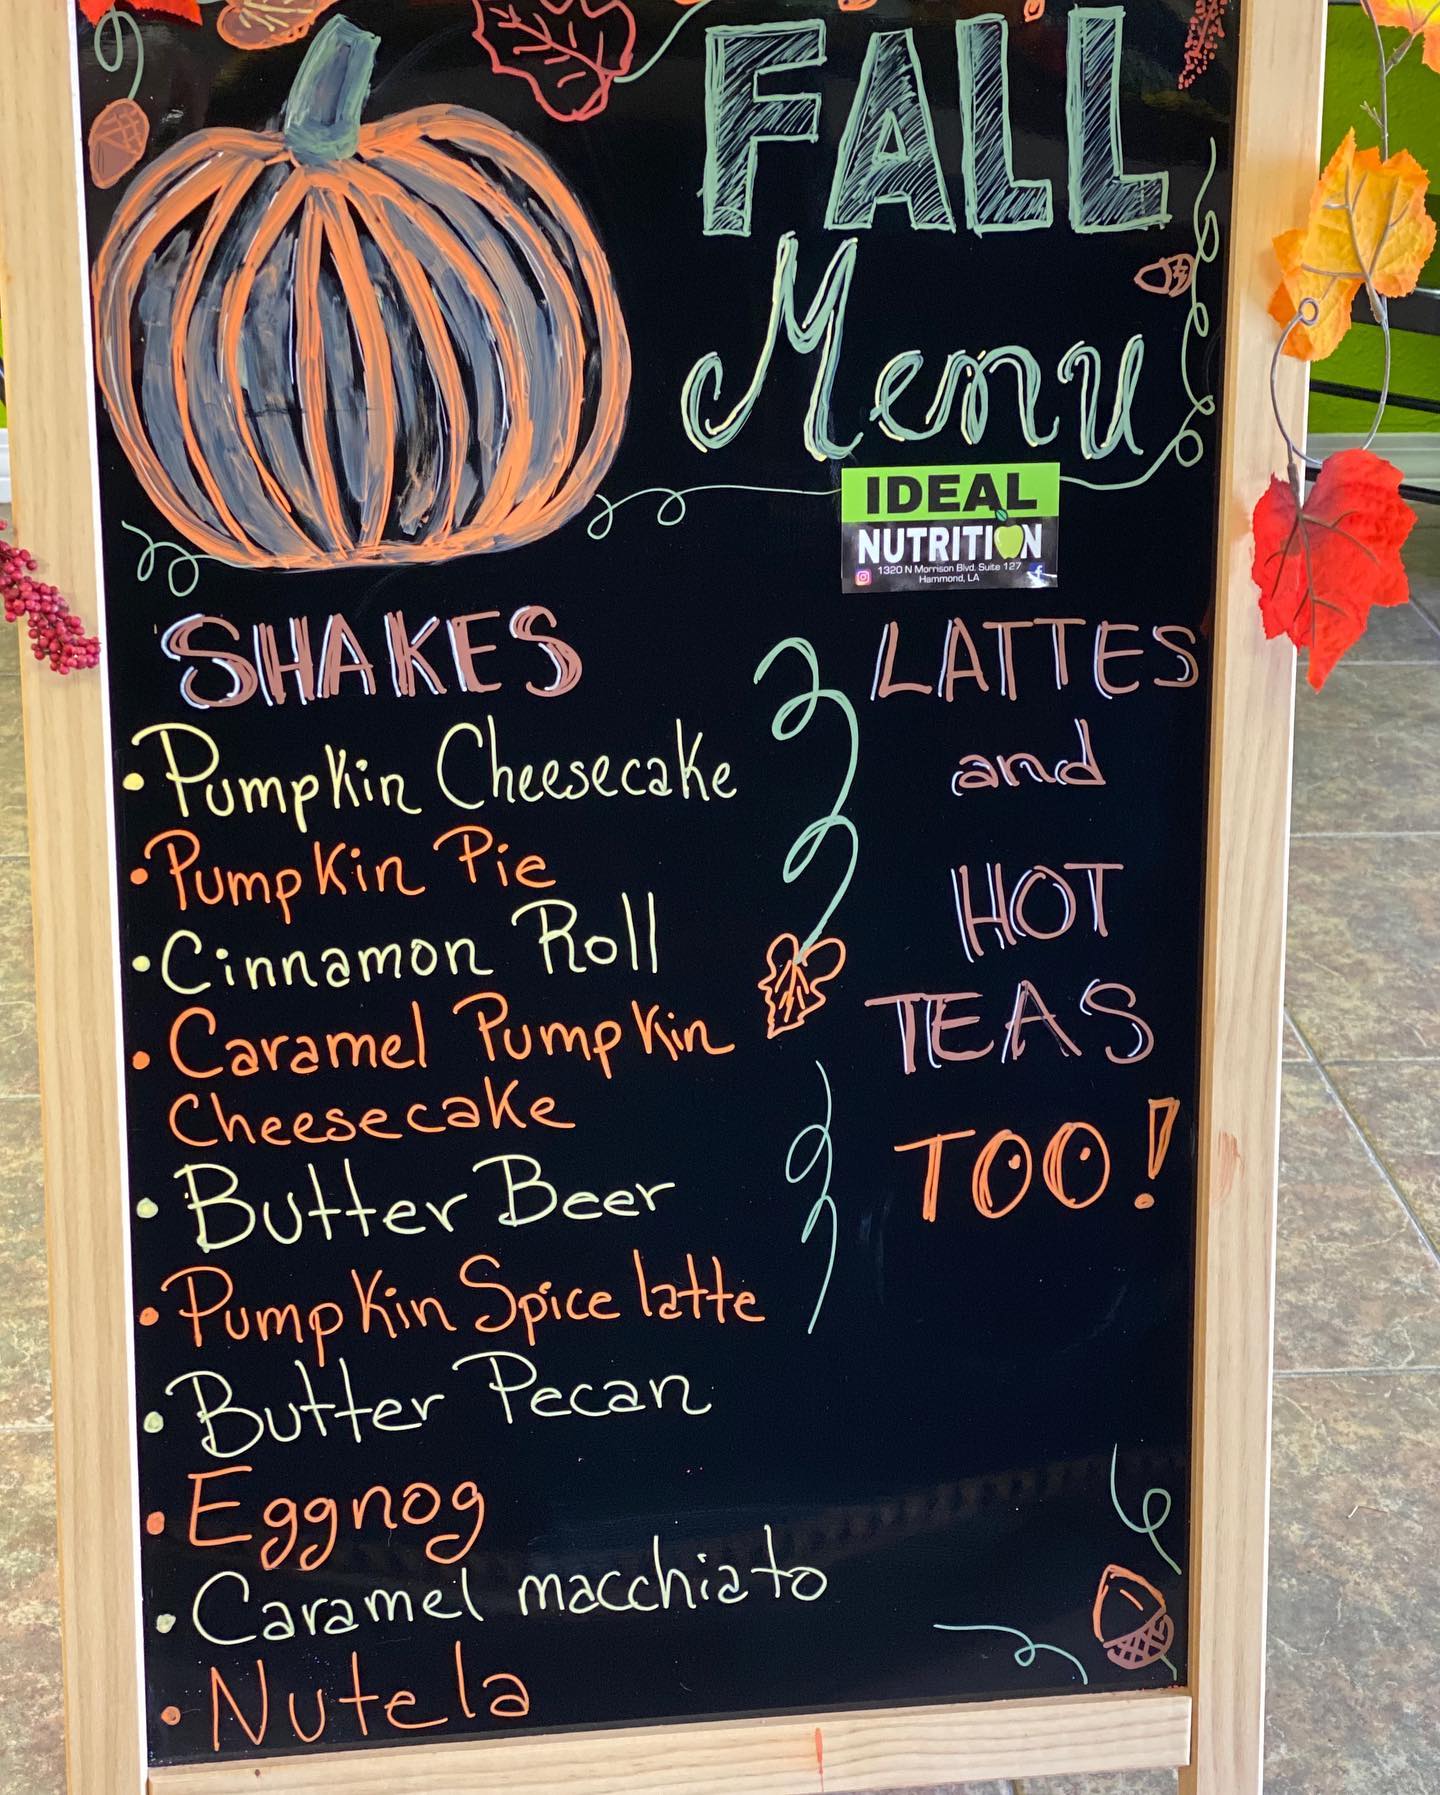 FALL
Menu
IDEAL
NUTRITION
1320 N Morrison Blvd. Suite 127
Hammond, LA
SHAKES
• Pumpkin Cheesecake
• Pumpkin Pie
• Cinnamon Roll
• Caramel Pumpkin
Cheesecake
• Butter Beer
• Pumpkin Spice latte
• Butter Pecan
• Eggnog
• Caramel macchiato
• Nutela
LATTES
and
HOT
TEAS
TOO!